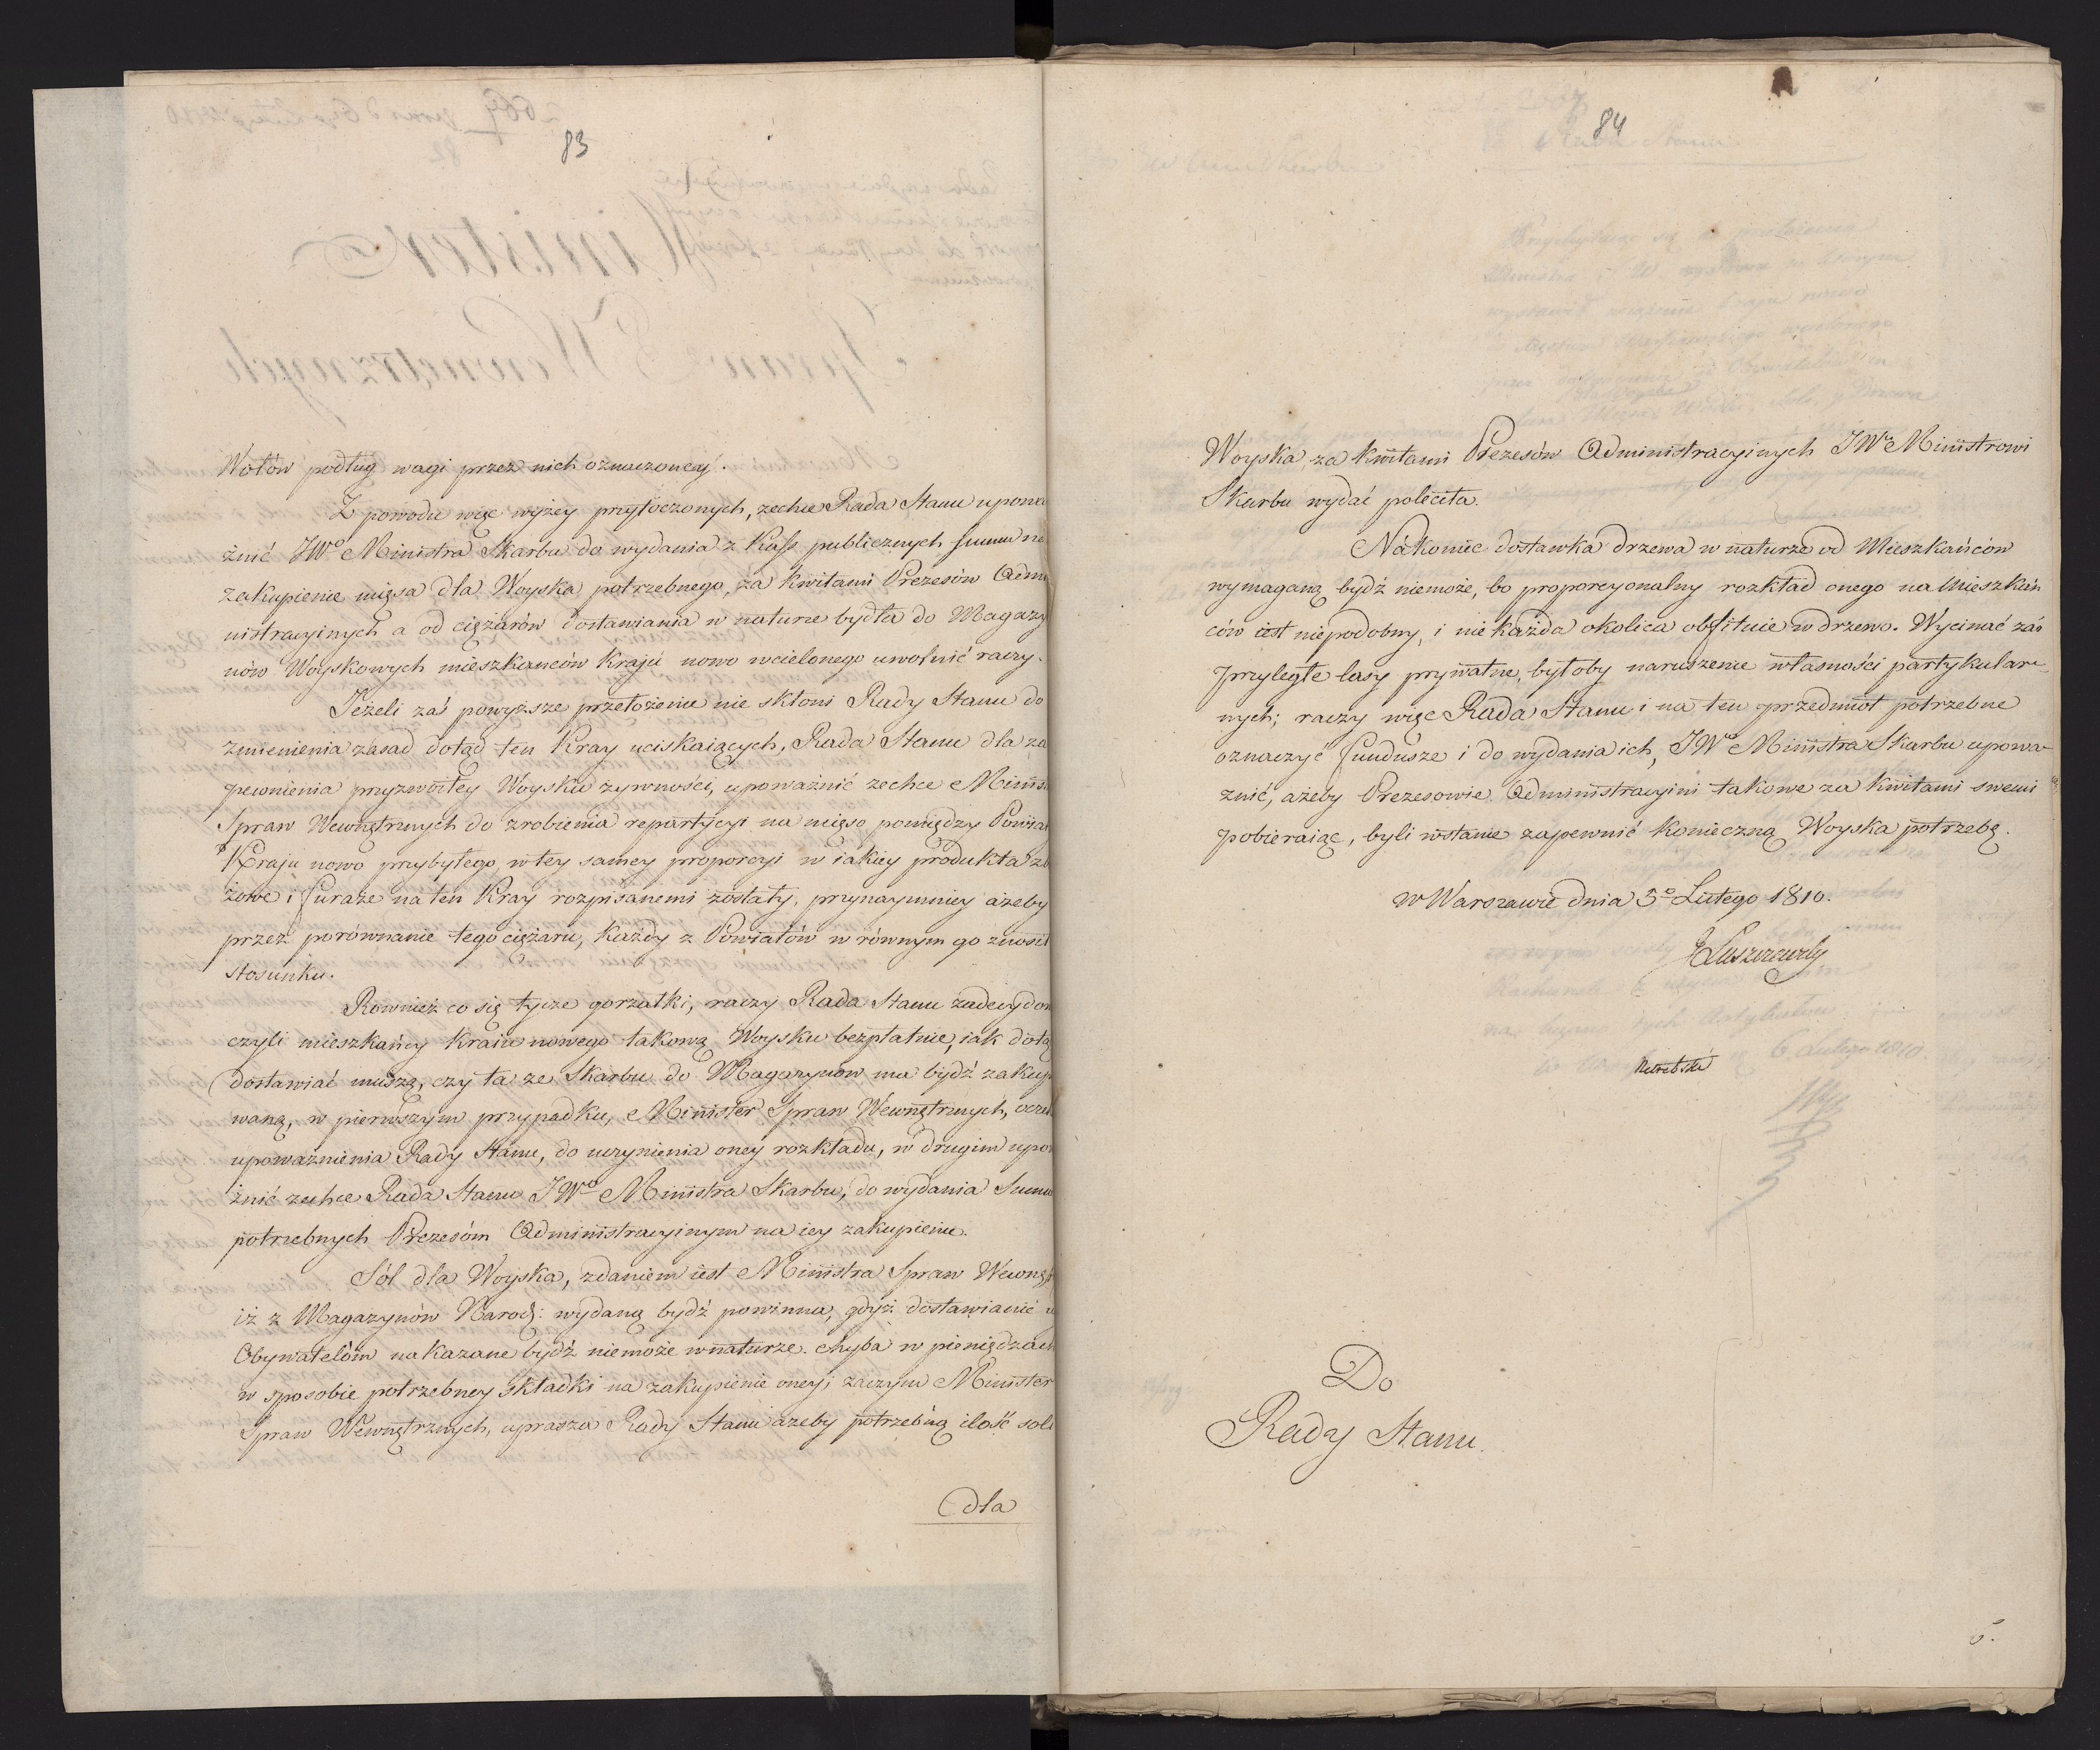 83
Wołów podług wagi przez nich oznaczoney.
Z powodu więc wyżey przytoczonych, zechce Rada Stanu upowa
żnić JWo Ministra Skarbu do wydania z Kass publicznych summ na
zakupienie mięsa dla Woyska potrzebnego, za kwitami Prezesów Admi
nistracyinych a od ciężarów dostawiania w naturze bydła do Magazy
nów Woyskowych mieszkańców Kraju nowo wcielonego uwolnić raczy.
Jeżeli zaś powyższe przełożenie nie skłoni Rady Stanu do
zmienienia zasad dotąd ten Kray uciskaiących, Rada Stanu dla za
pewnienia przyzwoitey Woysku żywności, upoważnić zechce Minis
Spraw Wewnętrznych do zrobienia repartycyi na mięso pomiędzy Powiat
Kraju nowo przybyłego w tey samey proporcyi w iakiey produkta zb
żowe i furaże na ten Kray rozpisanemi zostały, przynaymniey ażeby
przez porównanie tego ciężaru, każdy z Powiatów w równym go znosił
stosunku.
Rownież co się tycze gorzałki, raczy Rada Stanu zadecydow
czyli mieszkańcy Kraiu nowego takową Woysku bezpłatnie, iak dotą
dostawiać muszą, czy ta ze Skarbu do Magazynów ma bydź zakup
waną, w pierwszym przypadku, Minister Spraw Wewnętrznych, ocze
upoważnienia Rady Stanu, do uczynienia oney rozkładu, w drugim upow
żnić zechce Rada Stanu JWo Ministra Skarbu, do wydania Summ
potrzebnych Prezesóm Administracyinym na iey zakupienie.
Sól dla Woyska, zdaniem iest Ministra Spraw Wewnęt
iż z Magazynów Narod: wydaną bydź powinna, gdyż dostawianie
Obywatelóm nakazane bydź niemoże w naturze. chyba w pieniędzach
w sposobie potrzebney składki na zakupienie oney; zaczym Minister
Spraw Wewnętrznych, uprasza Rady Stanu ażeby potrzebną ilość soli
dla
84
Woyska za kwitami Prezesów Administracyinych JWu Ministrowi
Skarbu wydać poleciła.
Nakoniec dostawka drzewa w naturze od Mieszkańców
wymaganą bydź niemoże, bo proporcyonalny rozkład onego na Mieszkań
ców iest niepodobny, i nie każda okolica obfituie w drzewo. Wycinać zaś
przyległe lasy prywatne, byłoby naruszenie własności partykular-
nych; raczy więc Rada Stanu i na ten przedmiot potrzebne
oznaczyć fundusze i do wydania ich, JWo Ministra Skarbu upowa-
żnić, ażeby Prezesowie Administracyini takowe za kwitami swemi
pobieraiąc, byli wstanie zapewnić konieczną Woyska potrzebę.
w Warszawie dnia 5o Lutego 1810.
JŁuszczewski
Do
Rady Stanu.